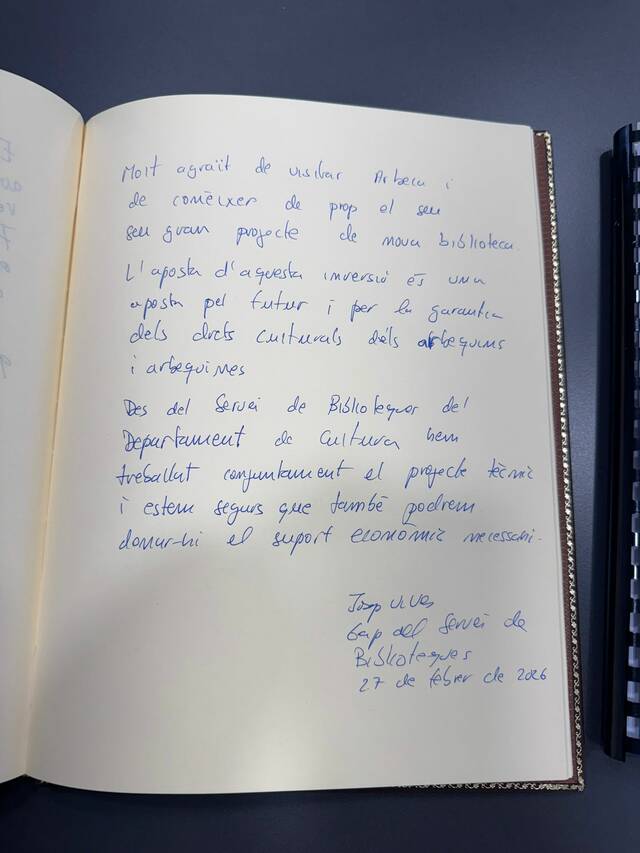 Molt agraït de visitar Arbeca i
de conèixer de prop el seu
seu gran projecte de nova biblioteca.
L'aposta d'aquesta inversió és una
aposta pel futur i per la garantia
dels drets culturals dels arbequins
i arbequines
Des del Servei de Biblioteques del
Departament de Cultura hem
treballat conjuntament el projecte tècnic
i estem segurs que també podrem
donar-hi el suport econòmic necessari.
Josep Vives
Cap del Servei de
Biblioteques
27 de febrer de 2026